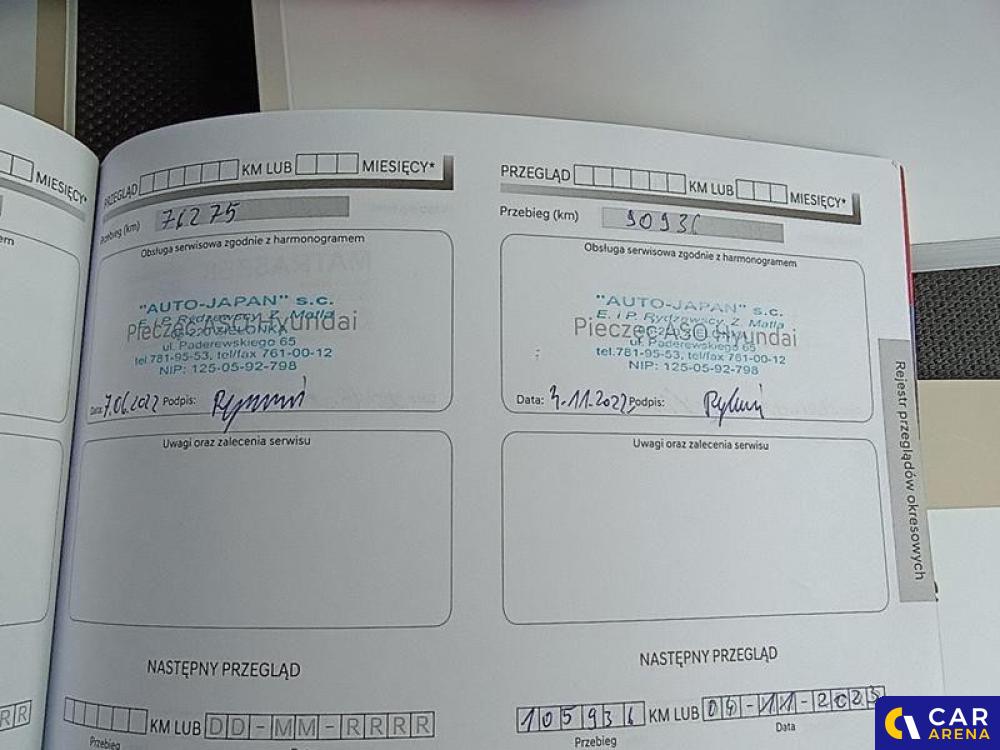 MIESIĘCY*
PRZEGLĄD KM LUB MIESIĘCY*
Przebieg (km) 76275
Obsługa serwisowa zgodnie z harmonogramem
"AUTO-JAPAN" s.c.
E. i P. Rydzewscy, Z. Matla
Pieczęć ASO Hyundai
ul. Paderewskiego 65
tel.781-95-53, tel/fax 761-00-12
NIP: 125-05-92-798
Data: 7.06.2022 Podpis:
Uwagi oraz zalecenia serwisu
NASTĘPNY PRZEGLĄD
KM LUB DD-MM-RRRR
Przebieg
PRZEGLĄD KM LUB MIESIĘCY*
Przebieg (km) 90936
Obsługa serwisowa zgodnie z harmonogramem
"AUTO-JAPAN" s.c.
E. i P. Rydzewscy, Z. Matla
Pieczęć ASO Hyundai
ul. Paderewskiego 65
tel.781-95-53, tel/fax 761-00-12
NIP: 125-05-92-798
Data: 11.2022 Podpis:
Uwagi oraz zalecenia serwisu
NASTĘPNY PRZEGLĄD
105936 KM LUB 04-11-2023
Przebieg Data
Rejestr przeglądów okresowych
RR
CAR
ARENA